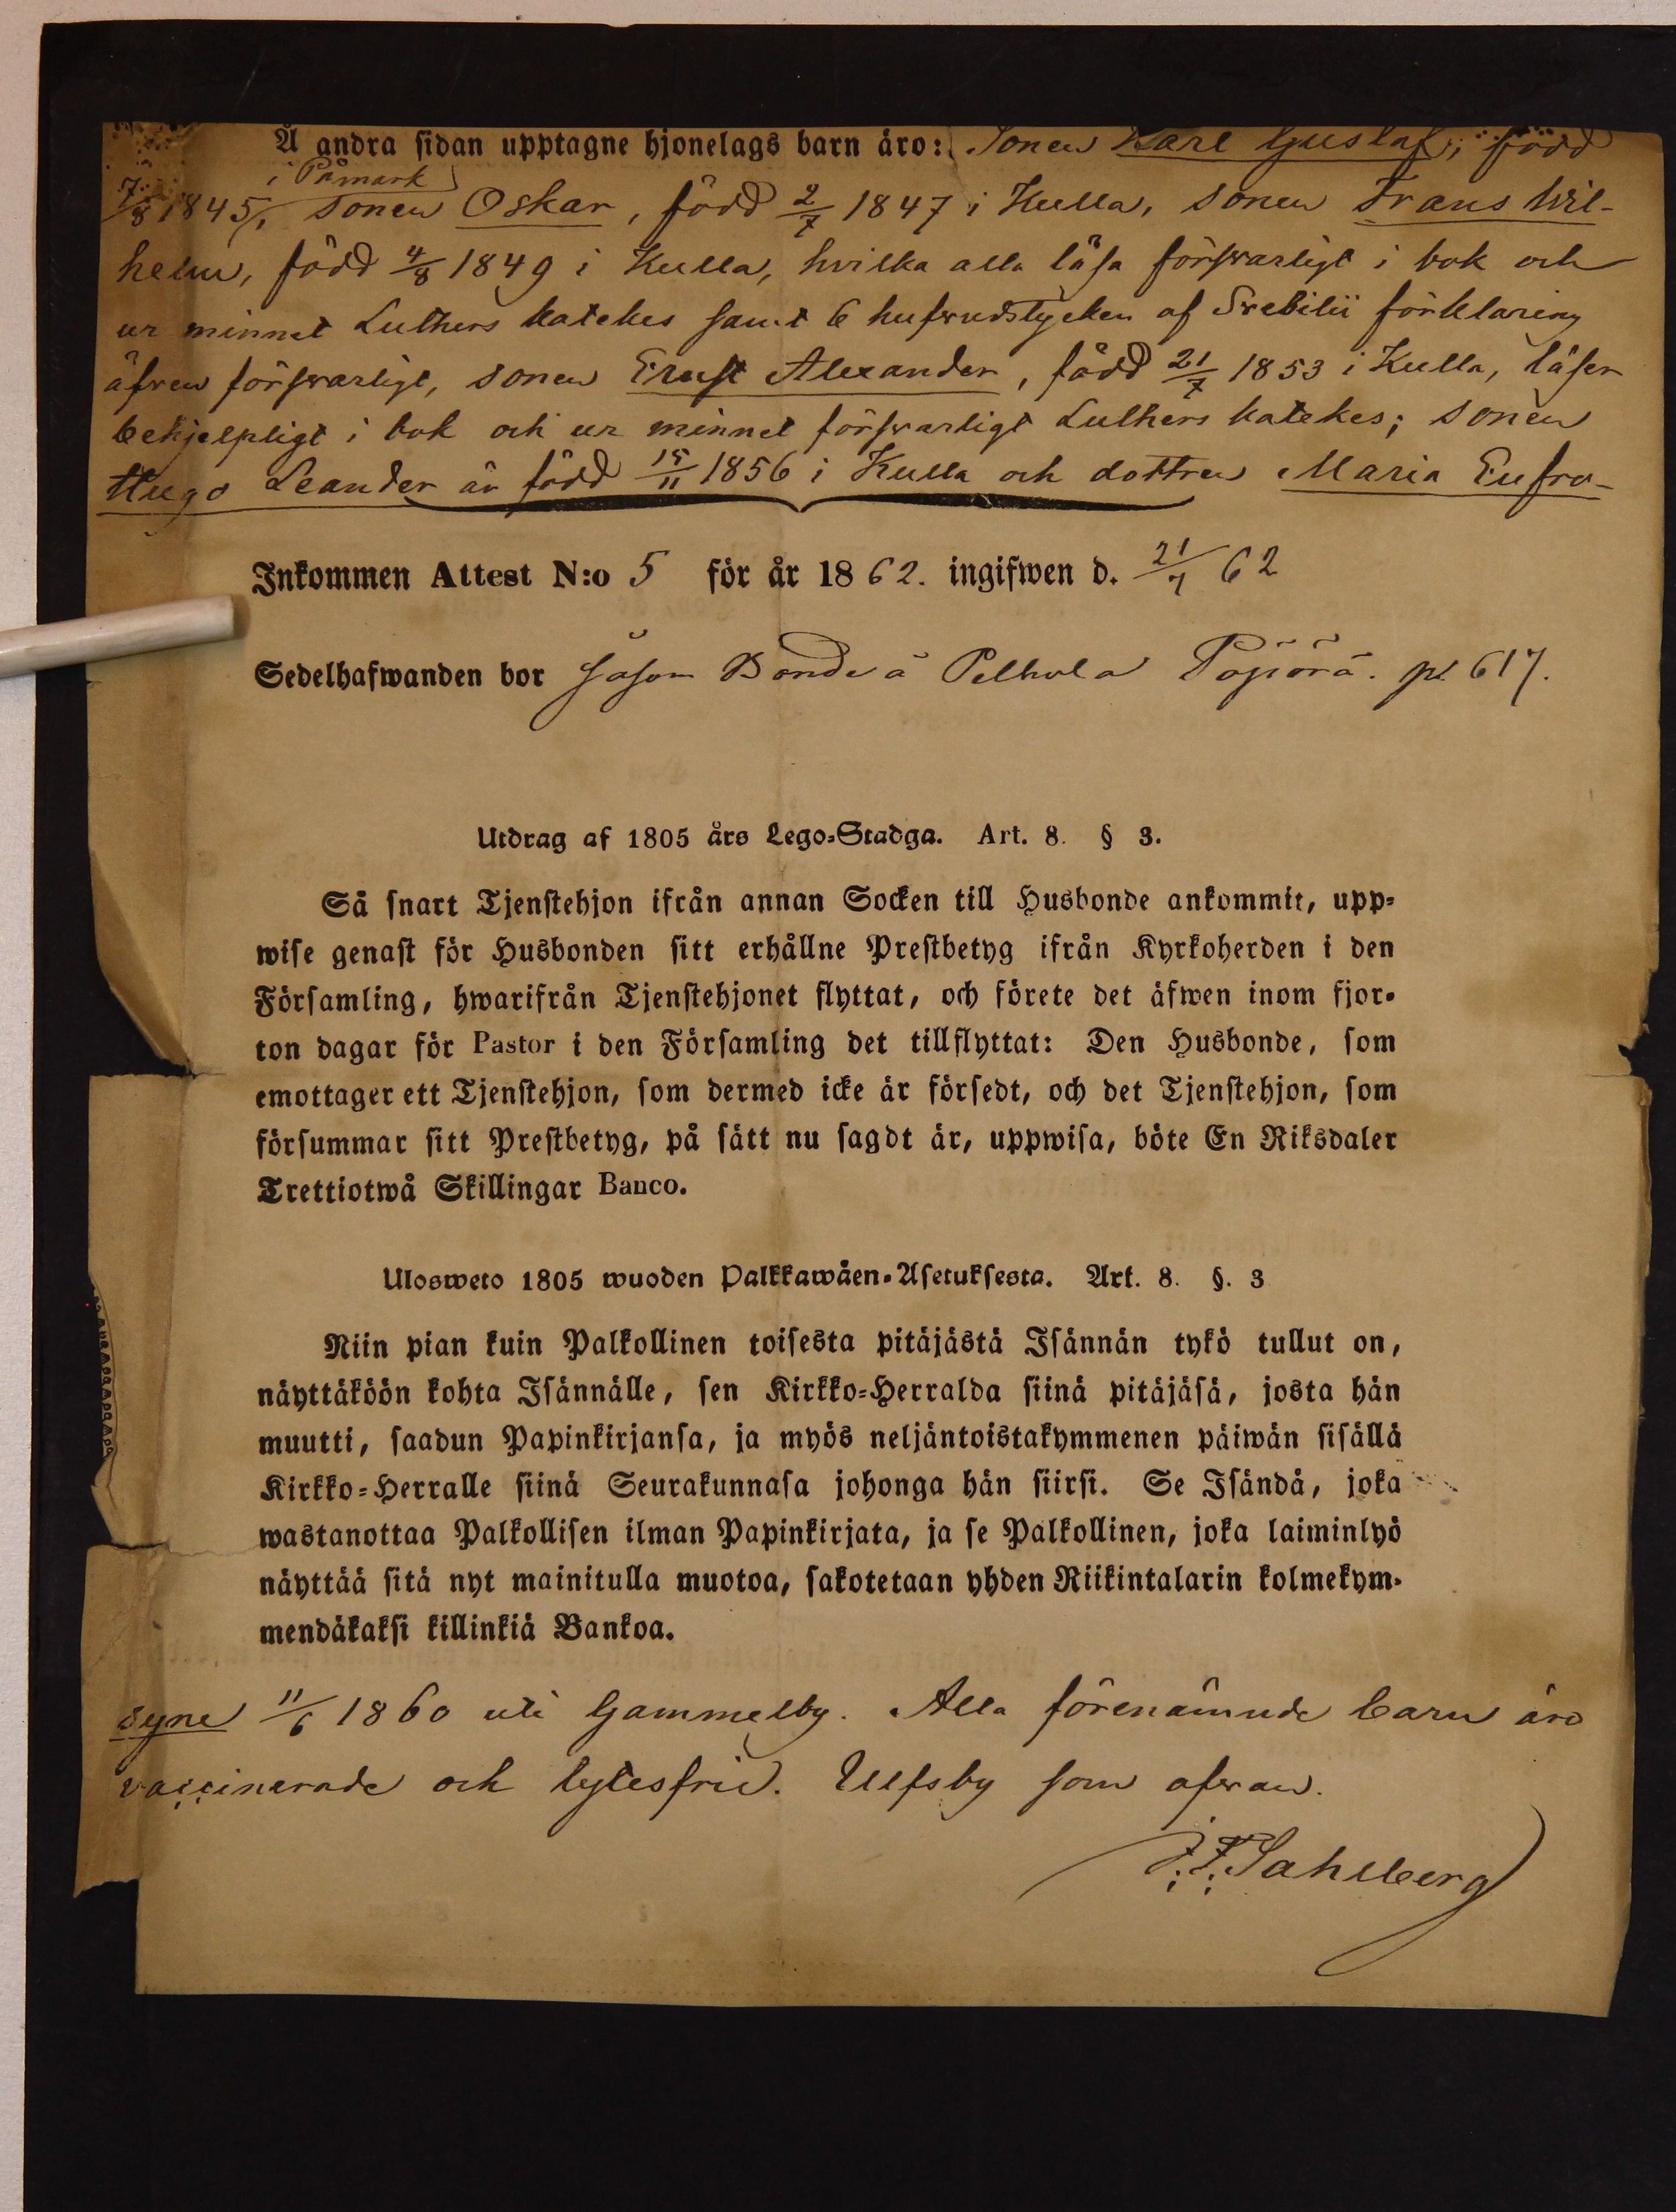 Å andra sidan upptagne hjonelags barn äro: Sonen Karl Gustaf, född
i Påmark
7/8 1845, sonen Oskar, född 2/7 1847 i Kulla, sonen Frans Wil-
helm, född 4/8 1849 i Kulla, hvilka alla läsa försvarligt i bok och
ur minnet Luthers katekes samt 6 hufvudstycken af Svebilii förklaring
äfven försvarligt, sonen Ernst Alexander, född 21/7 1853 i Kulla, läser
behjelpligt i bok och ur minnet försvarligt Luthers katekes; sonen
Hugo Leander är född 15/11 1856 i Kulla och dottren Maria Eufro-
Inkommen Attest N:o 5 för år 1862. ingifwen d. 21/7 62
Sedelhafwanden bor såsom Bonde å Pelhola p. 617.
Utdrag af 1805 års Lego-Stadga. Art. 8. § 3.
Så snart Tjenstehjon ifrån annan Socken till Husbonde ankommit, upp-
wise genast för Husbonden sitt erhållne Prestbetyg ifrån Kyrkoherden i den
Församling, hwarifrån Tjenstehjonet flyttat, och förete det äfwen inom fjor-
ton dagar för Pastor i den Församling det tillflyttat: Den Husbonde, som
emottager ett Tjenstehjon, som dermed icke är försedt, och det Tjenstehjon, som
försummar sitt Prestbetyg, på sätt nu sagdt är, uppwisa, böte En Riksdaler
Trettiotwå Skillingar Banco.
Ulosweto 1805 wuoden Palkkawäen-Asetuksesta. Art. 8. §. 3
Niin pian kuin Palkollinen toisesta pitäjästä Isännän tykö tullut on,
näyttäköön kohta Isännälle, sen Kirkko-Herralda siinä pitäjäsä, josta hän
muutti, saadun Papinkirjansa, ja myös neljäntoistakymmenen päiwän sisällä
Kirkko-Herralle siinä Seurakunnasa johonga hän siirsi. Se Isändä, joka
wastanottaa Palkollisen ilman Papinkirjata, ja se Palkollinen, joka laiminlyö
näyttää sitä nyt mainitulla muotoa, sakotetaan yhden Riikintalarin kolmekym-
mendäkaksi killinkiä Bankoa.
syne 11/6 1860 uti Gammelby. Alla förenämnde barn äro
vaccinerade och lytesfrie. Ulfsby som ofvan.
J. F. Sahlberg